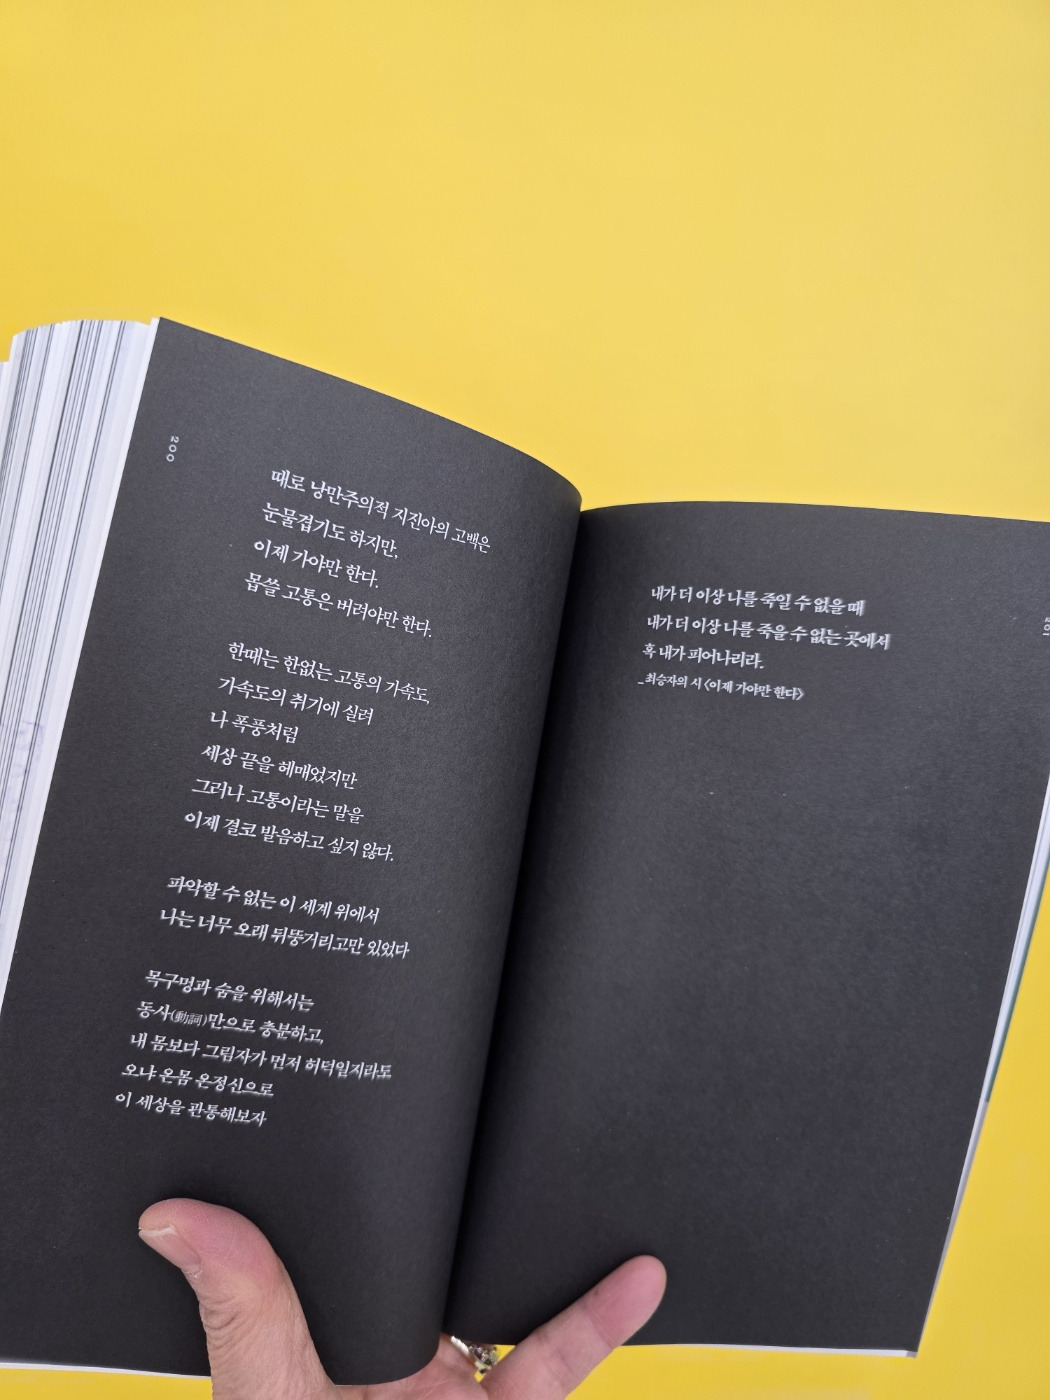 200
때로 낭만주의적 지진아의 고백은
눈물겹기도 하지만,
이제 가야만 한다.
몹쓸 고통은 버려야만 한다.
한때는 한없는 고통의 가속도,
가속도의 취기에 실려
나 폭풍처럼
세상 끝을 헤매었지만
그러나 고통이라는 말을
이제 결코 발음하고 싶지 않다.
파악할 수 없는 이 세계 위에서
나는 너무 오래 뒤뚱거리고만 있었다
목구멍과 숨을 위해서는
동사(動詞)만으로 충분하고,
내 몸보다 그림자가 먼저 허덕일지라도
오냐 온몸 온정신으로
이 세상을 관통해보자
내가 더 이상 나를 죽일 수 없을 때
내가 더 이상 나를 죽을 수 없는 곳에서
혹 내가 피어나리라.
_최승자의 시 〈이제 가야만 한다〉
201